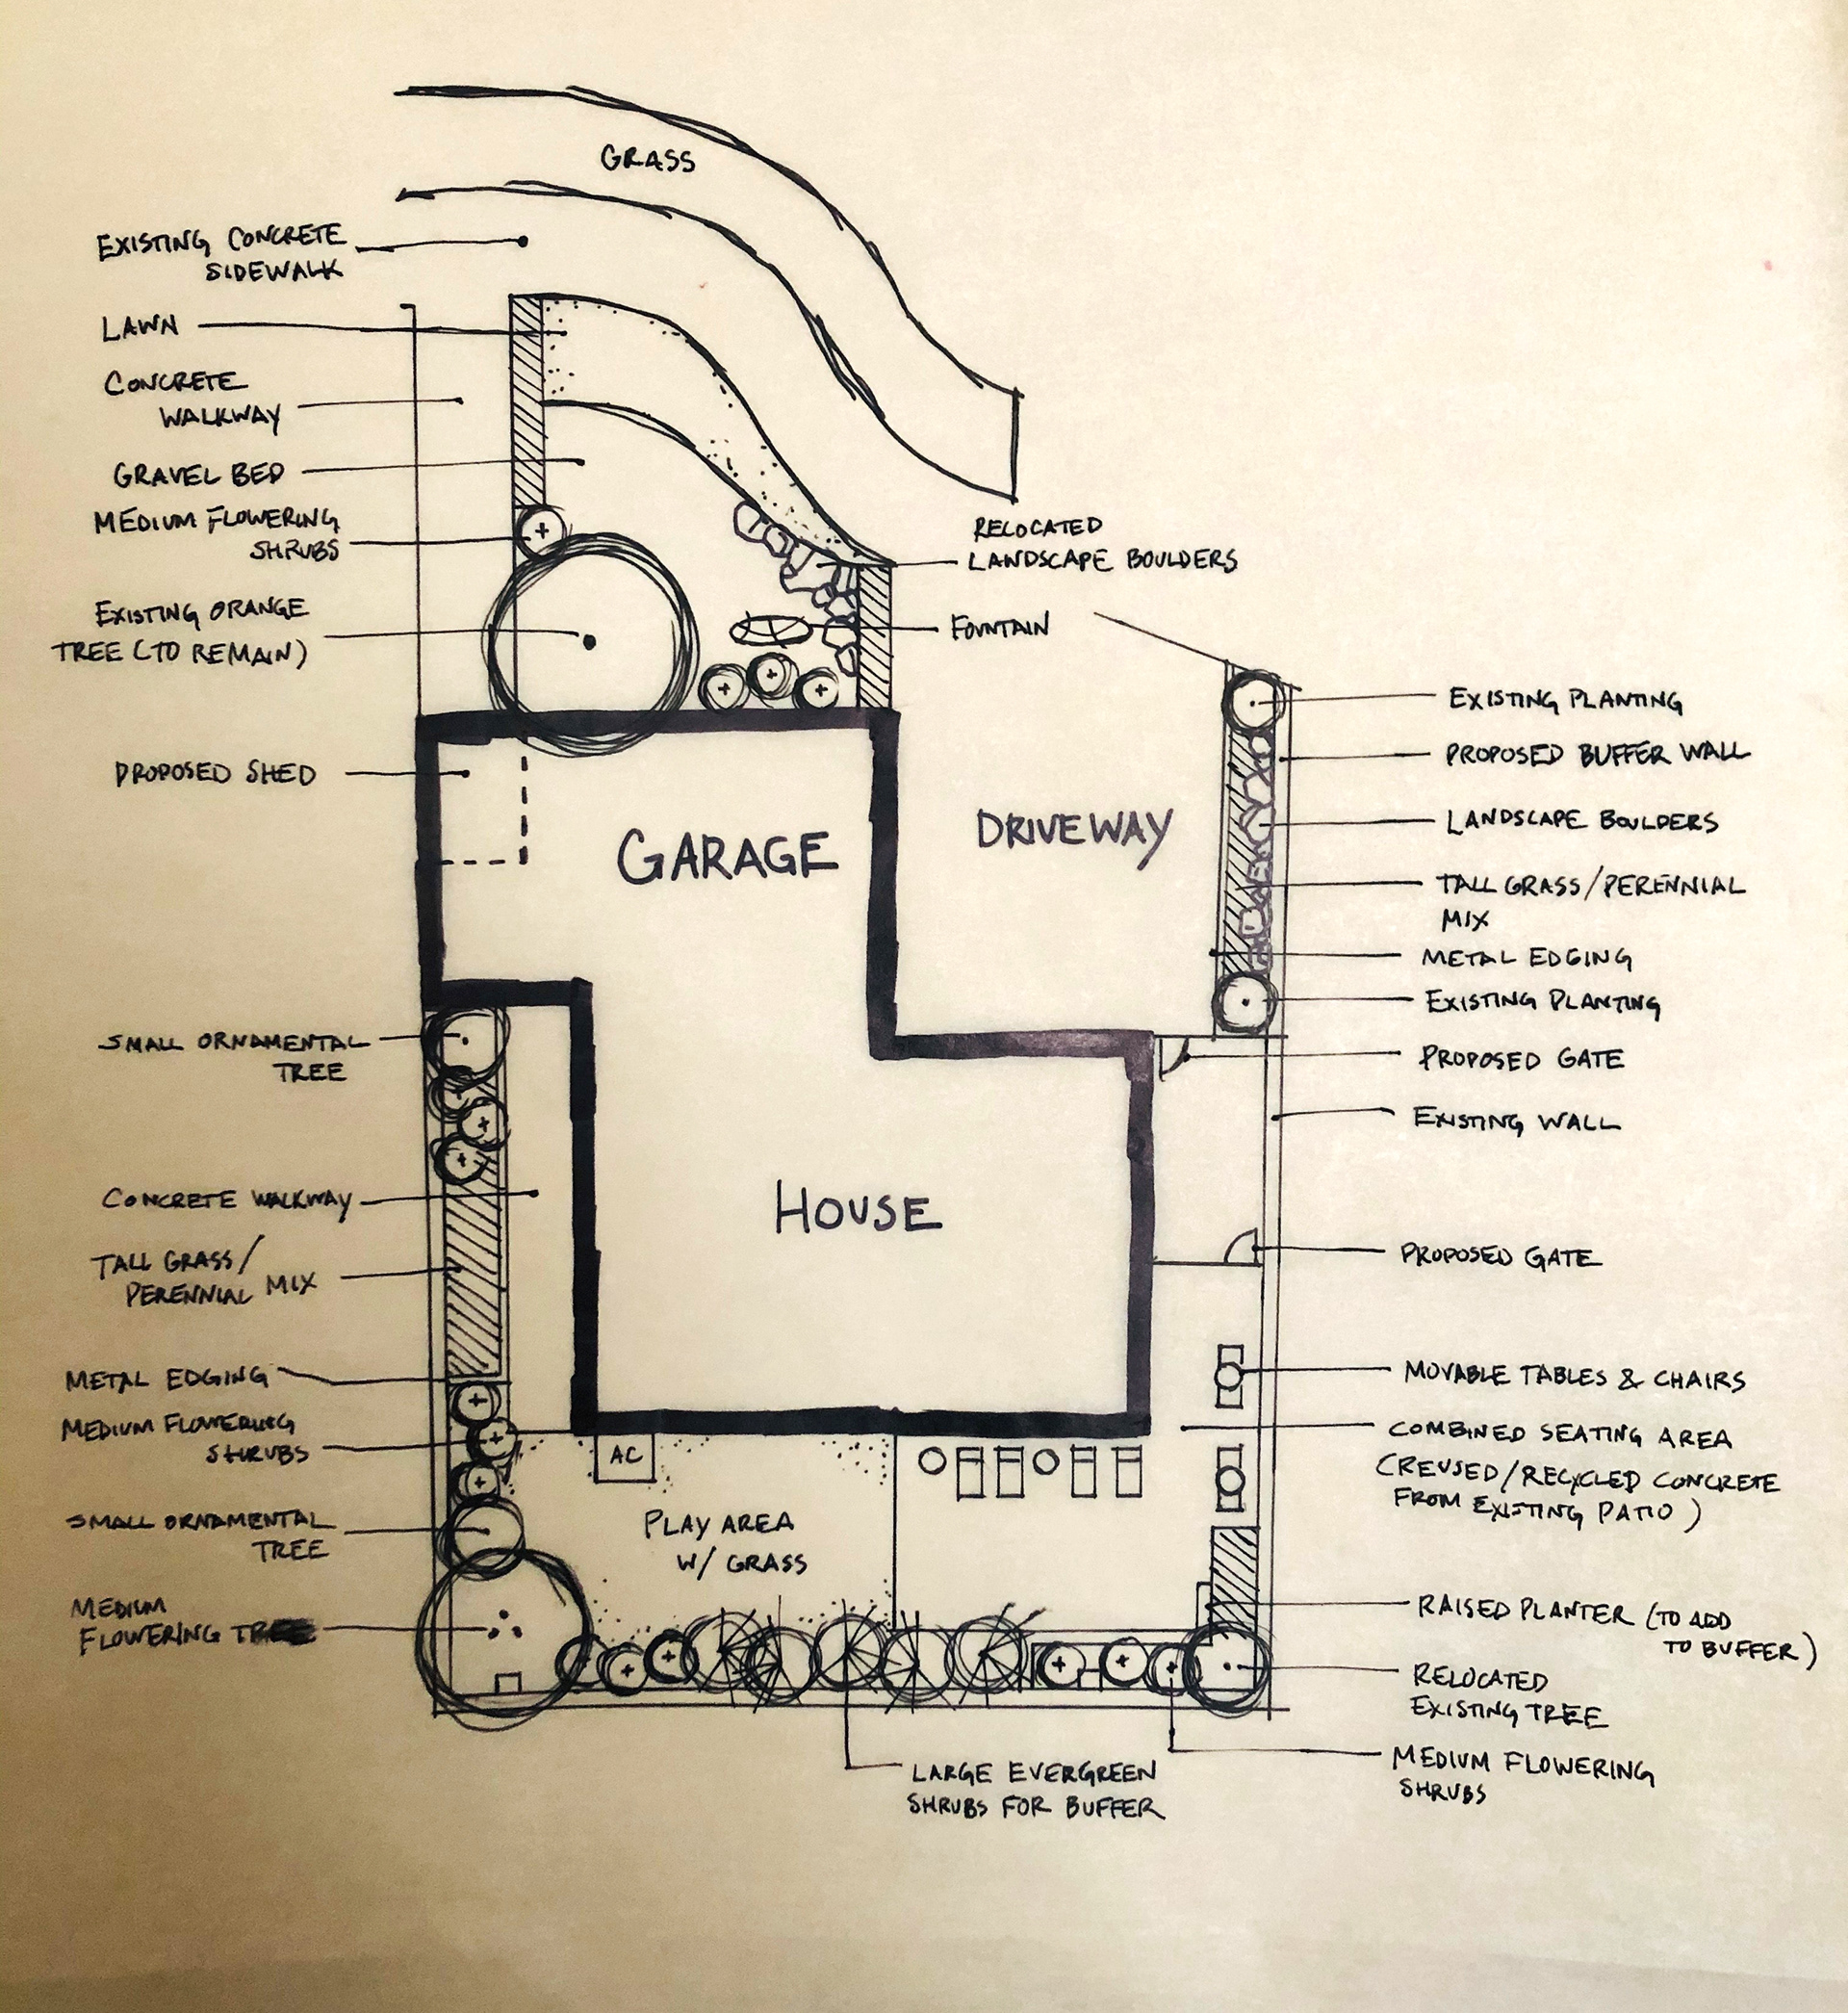 GRASS
EXISTING CONCRETE
SIDEWALK
LAWN
CONCRETE
WALKWAY
GRAVEL BED
MEDIUM FLOWERING
SHRUBS
EXISTING ORANGE
TREE (TO REMAIN)
RELOCATED
LANDSCAPE BOULDERS
FOUNTAIN
PROPOSED SHED
GARAGE
DRIVEWAY
EXISTING PLANTING
PROPOSED BUFFER WALL
LANDSCAPE BOULDERS
TALL GRASS/PERENNIAL
MIX
METAL EDGING
EXISTING PLANTING
PROPOSED GATE
EXISTING WALL
SMALL ORNAMENTAL
TREE
CONCRETE WALKWAY
TALL GRASS/
PERENNIAL MIX
HOUSE
PROPOSED GATE
METAL EDGING
MEDIUM FLOWERING
SHRUBS
SMALL ORNAMENTAL
TREE
MEDIUM
FLOWERING TREE
AC
PLAY AREA
W/ GRASS
MOVABLE TABLES & CHAIRS
COMBINED SEATING AREA
(REUSED/RECYCLED CONCRETE
FROM EXISTING PATIO)
RAISED PLANTER (TO ADD
TO BUFFER)
RELOCATED
EXISTING TREE
MEDIUM FLOWERING
SHRUBS
LARGE EVERGREEN
SHRUBS FOR BUFFER